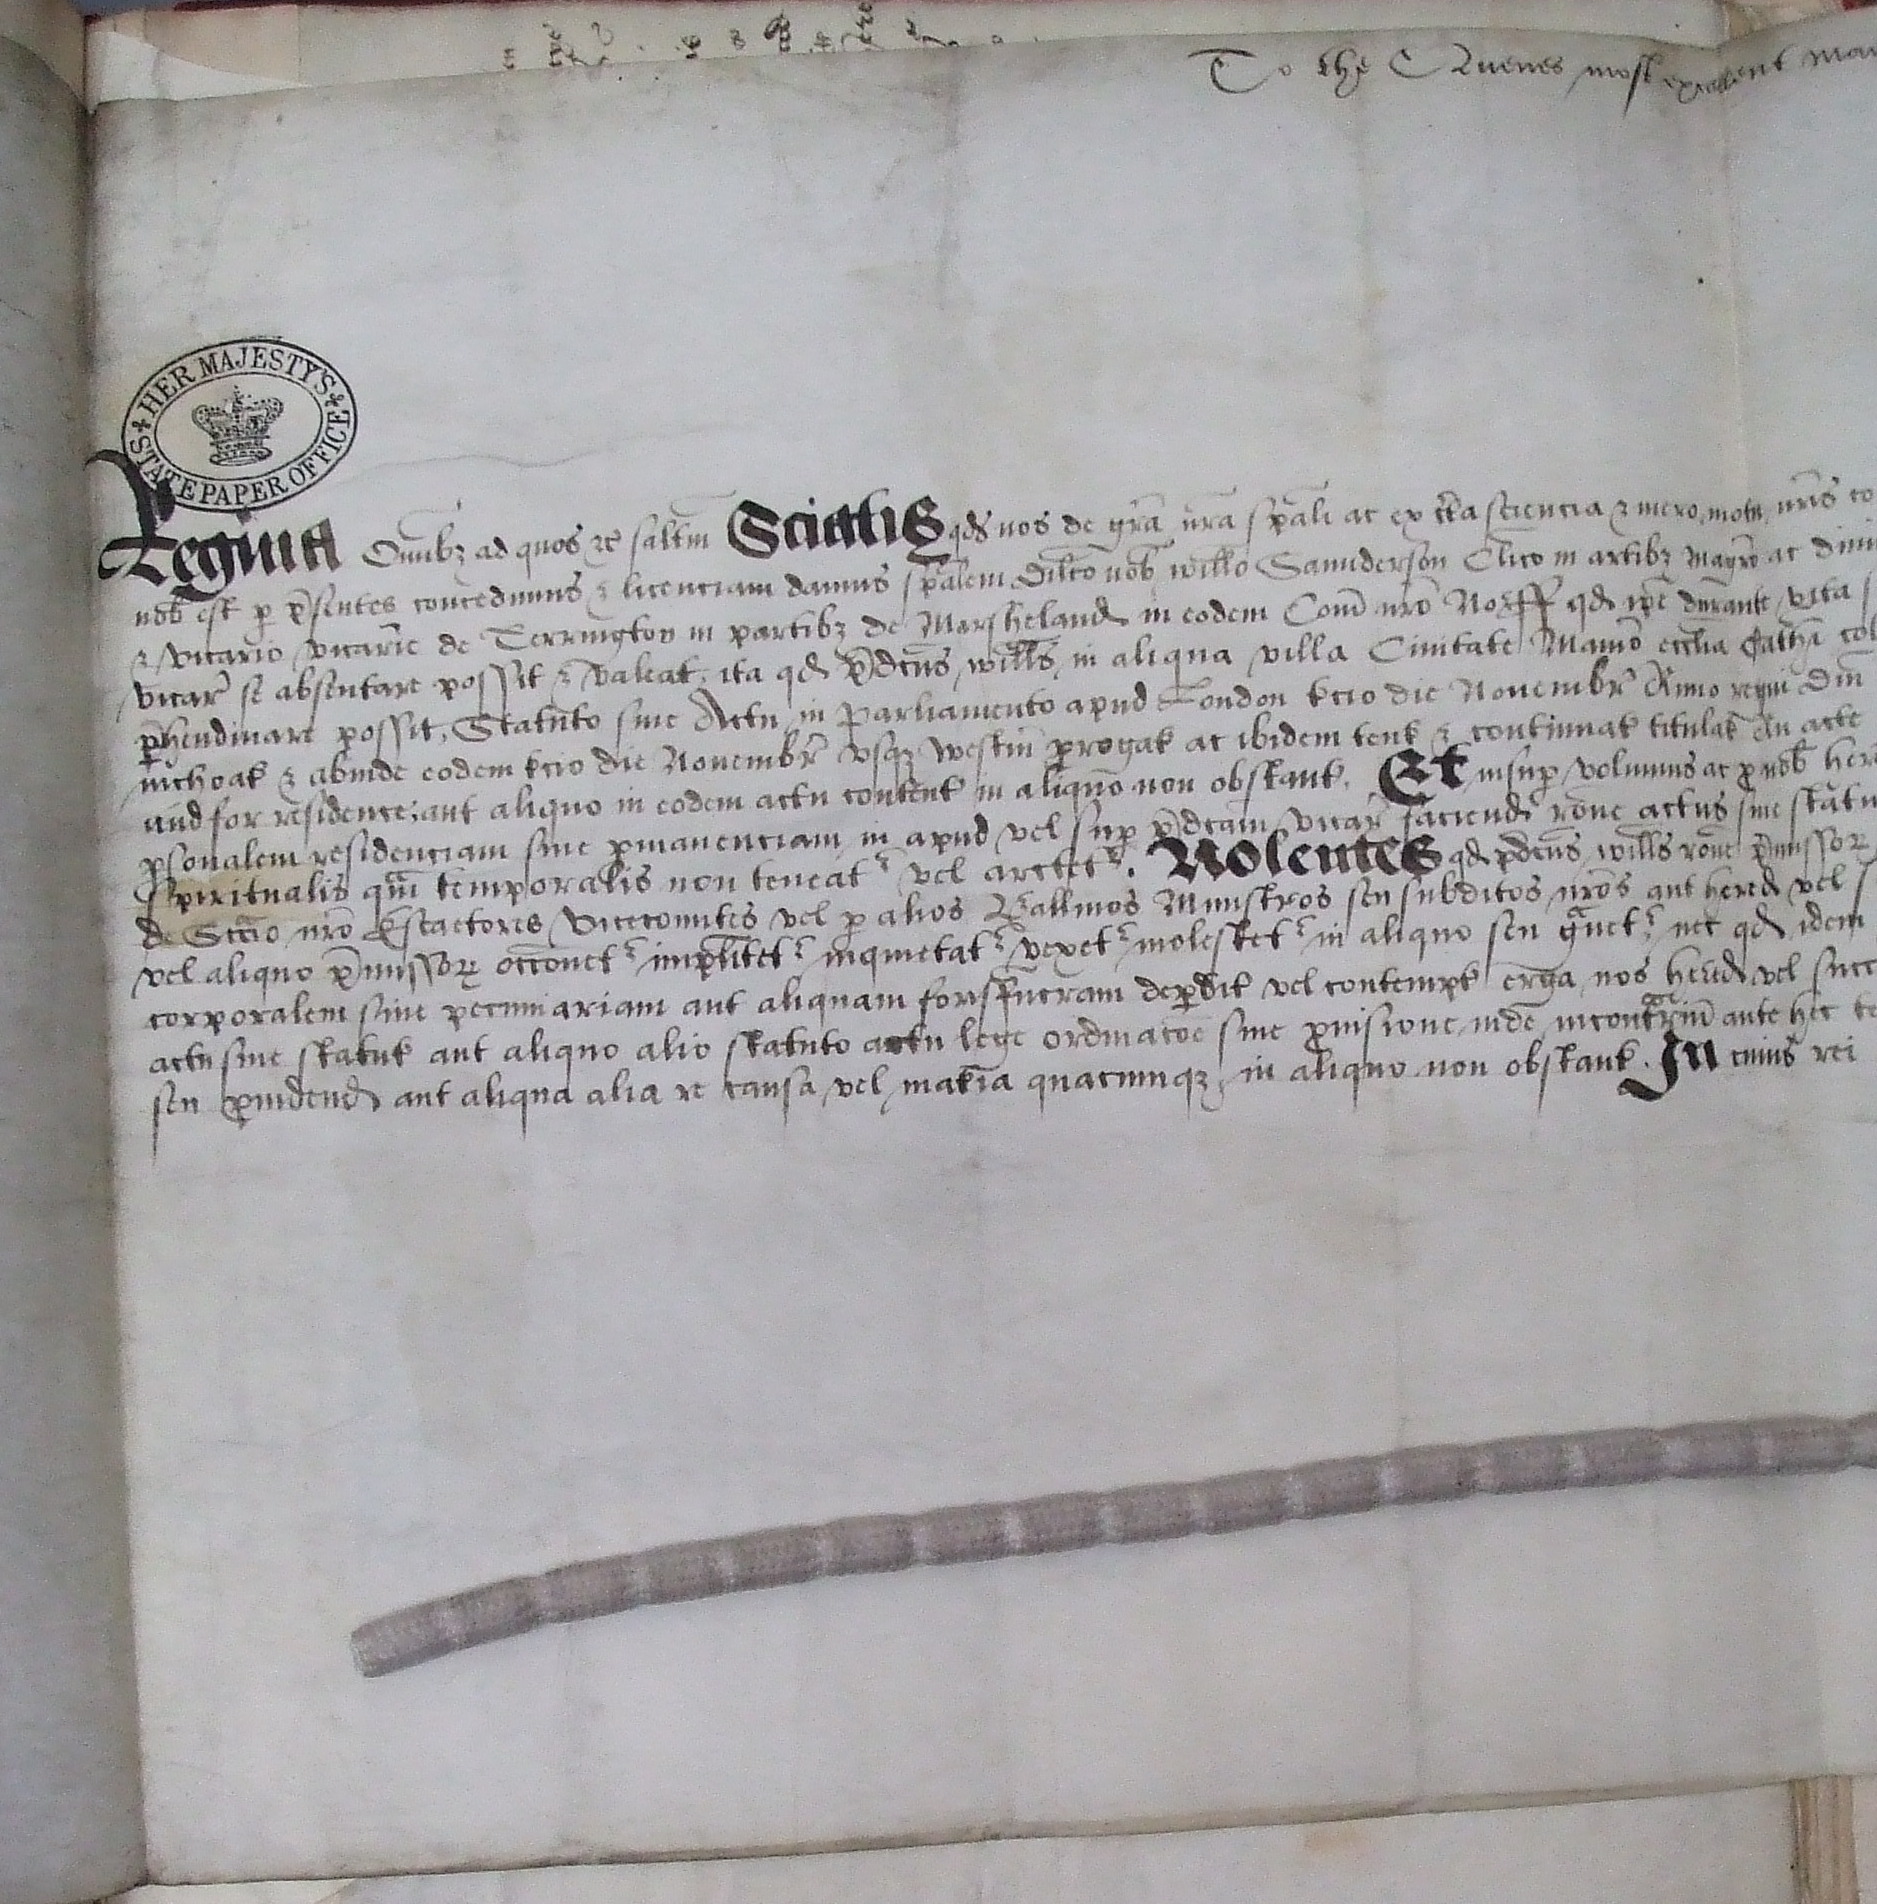 To the Quenes most excellent
HER MAJESTY'S
STATE PAPER OFFICE
Regina Om̄ibȝ ad quos ꝛc̄ salt̄m Sciatis qd̄ nos de gr̄a nr̄a sp̄ali ac ex c̄ta sciencia ⁊ mero motu nr̄is co
nob̄ est p̱ p̄sentes concedimus ⁊ licenciam damus sp̄alem Dilc̄o nob̄ will̄o Saunderson Cl̄ico in artibȝ Magr̄o ac
⁊ vicario vicarie de Terrington in partibȝ de Marsheland in eodem Com̄ nr̄o Norff qd̄ ip̄e durante vita
vicar̄ se absentare possit ⁊ valeat, ita qd̄ p̄dc̄us will̄s in aliqua villa Ciuitate Man̄io eccl̄ia Cath̄i
p̱hendinare possit, Statuto siue Actu in Parliamento apud London t̄cio die Nouembr̄ Anno regni
inchoat̄ ⁊ abinde eodem t̄cio die Nouembr̄ vsqȝ westm̄ prorogat̄ ac ibidem tent̄ ⁊ continuat̄ titulat̄ An acte
and for residence; aut aliquo in eodem actu content̄ in aliquo non obstant̄. Et insup̱ volumus ac p̱ nob̄
p̱sonalem residenciam siue p̱manenciam in apud vel sup̱ p̄dc̄am vicar̄ faciend̄ rōne actus siue statu
spiritualis qm̄ temporalis non teneat᷑ vel arctet᷑. Nolentes qd̄ p̄dc̄us will̄s rōne p̄missoꝝ
de Sc̄cio nr̄o Escaetores Vicecomites vel p̱ alios Balliuos Ministros seu subditos nr̄os aut hered̄ vel
vel aliquo p̄missoꝝ occōnet᷑ impl̄itet᷑ inquietat᷑ vexet᷑ molestet᷑ in aliquo seu g̃uet᷑, nec qd̄ idem
corporalem siue pecuniariam aut aliquam forisf̄curam dep̱dit̄ vel contempt̄ erga nos hered̄ vel succ
actu siue statut̄ aut aliquo alio statuto actu lege ordinac̄oe siue ꝓuisione inde incontr̄rium ante hec
seu ꝓuidend̄ aut aliqua alia re causa vel mat̄ia quacumqȝ in aliquo non obstant̄. In cuius rei